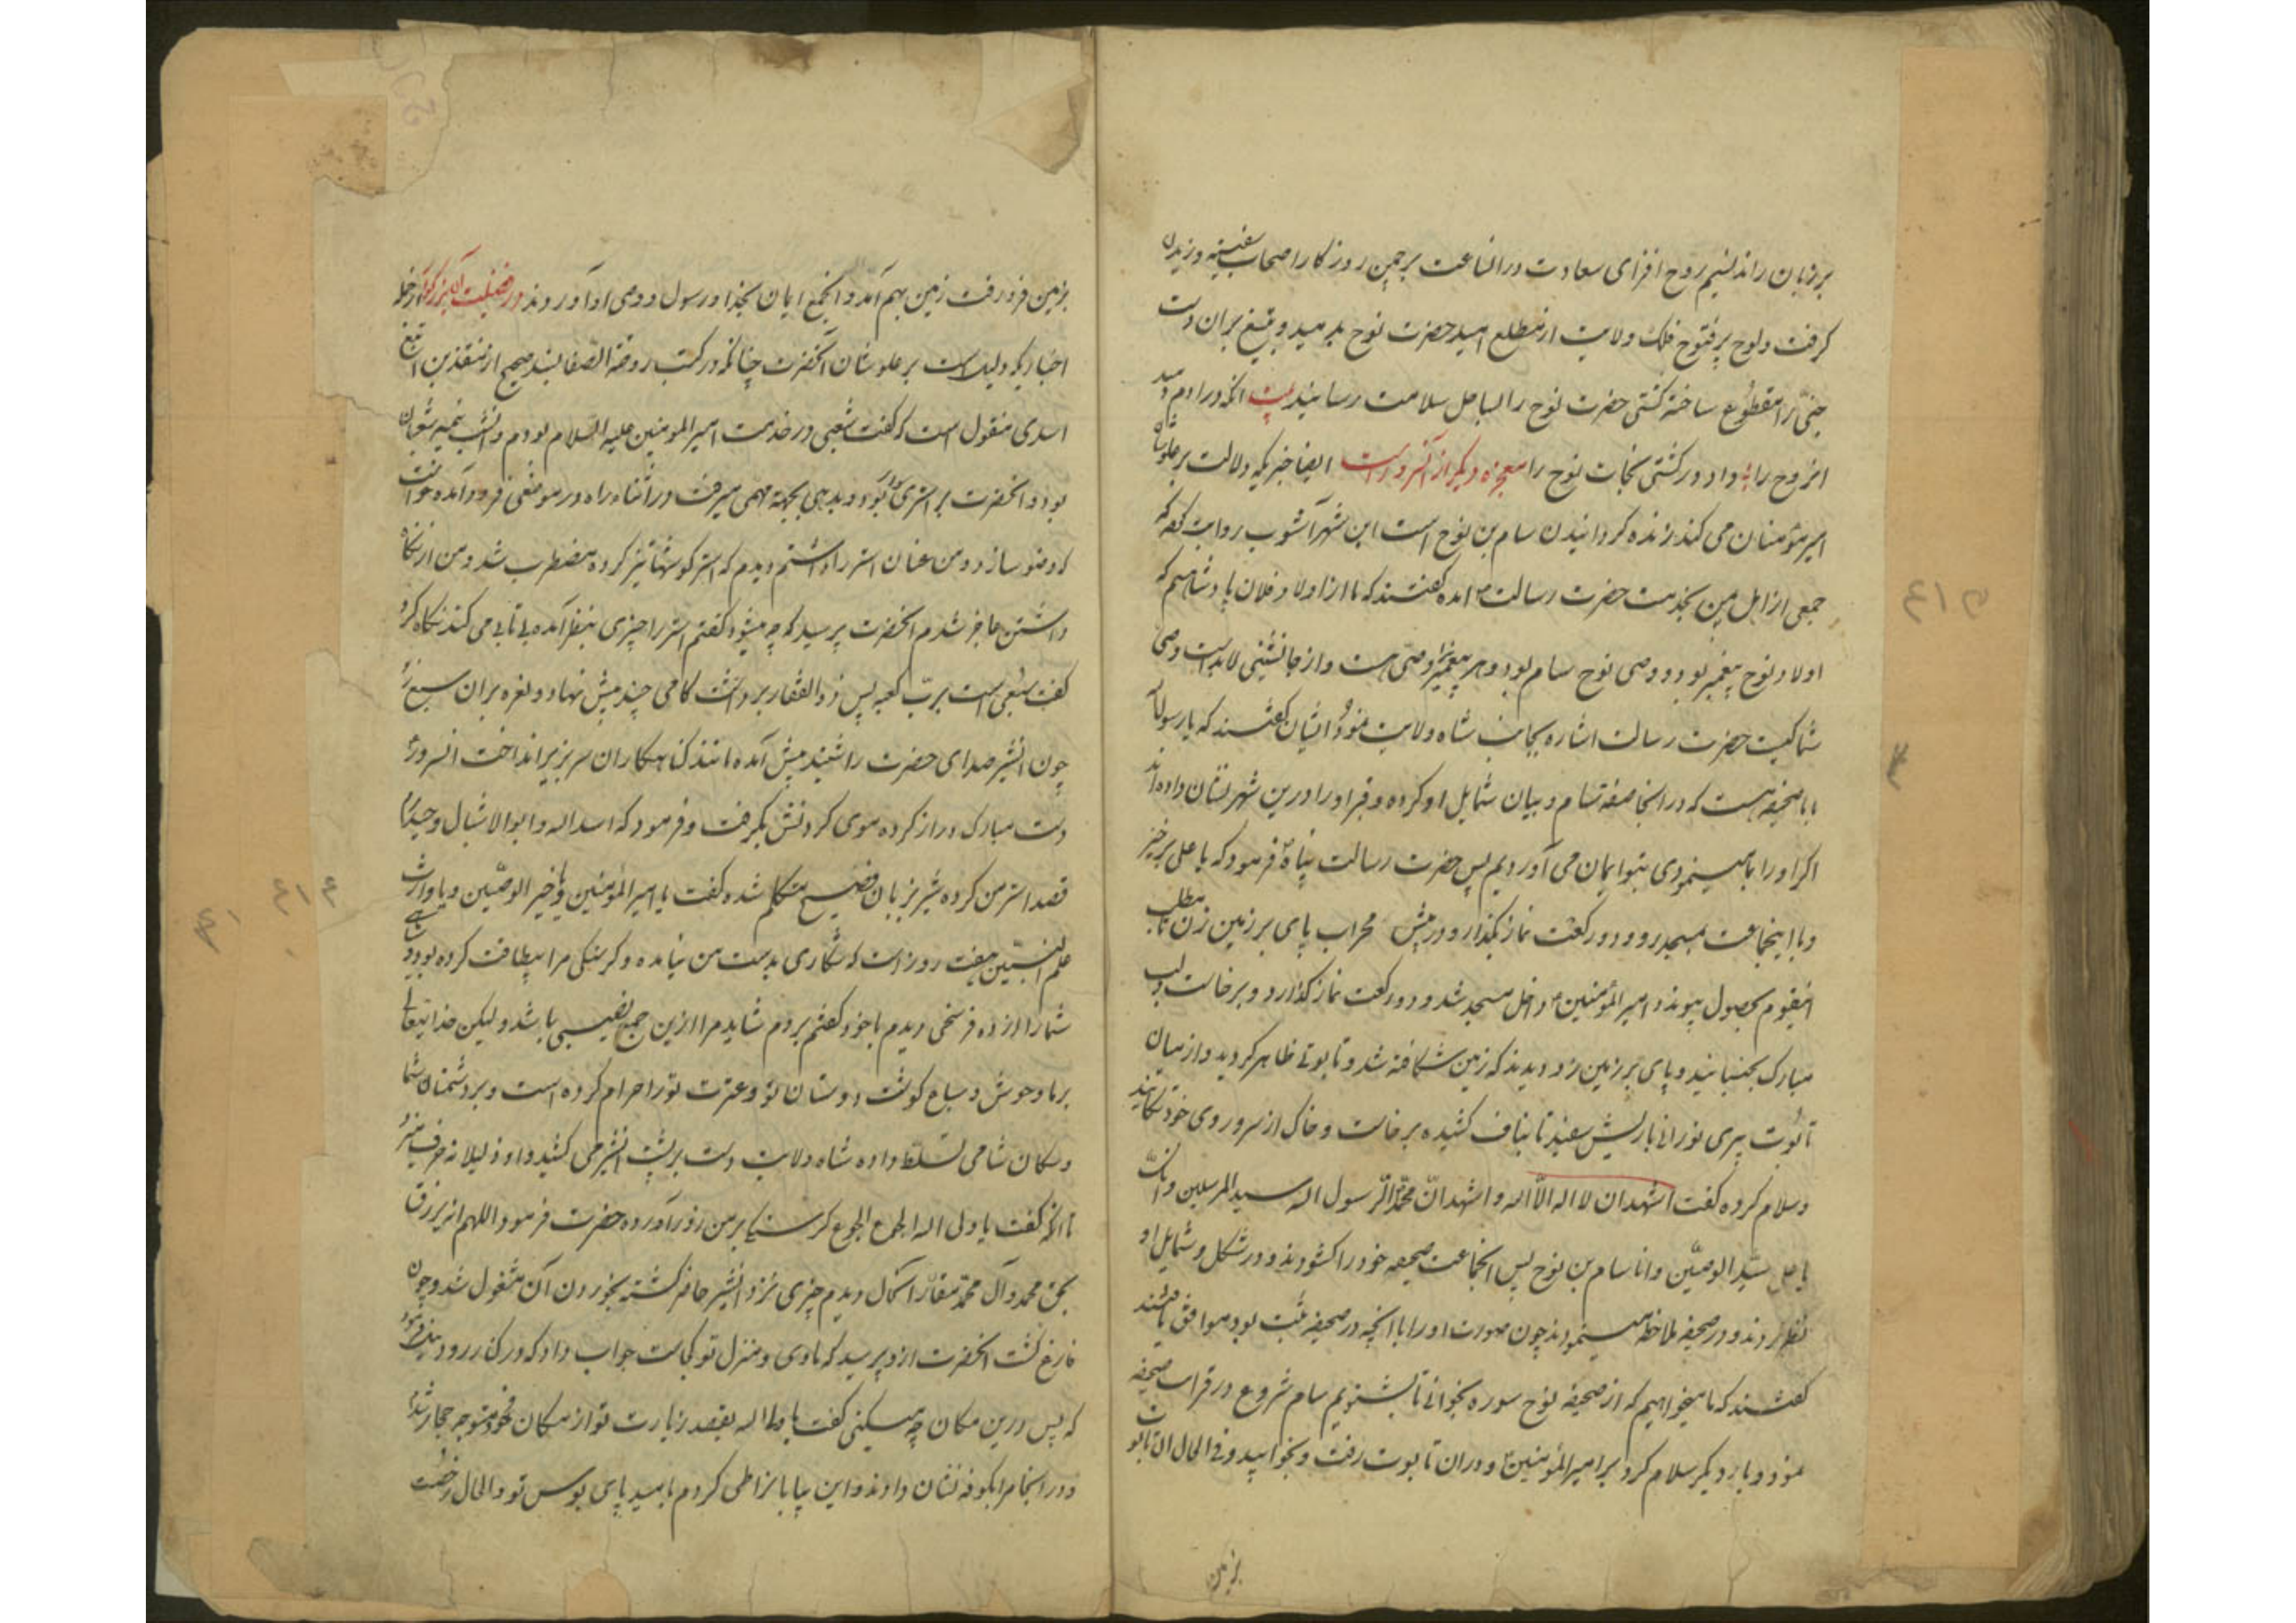 بر زبان راند نسیم روح افزای سعادت در الساعت بر چمن روزکار اصحاب سفینه وزیدن
کرفت ولوح پرفتوح فلک ولایت از مطلع امید حضرت نوح بدرمید و بتیغ بران دست
جنی را مقطوع ساخته کشتی حضرت نوح را بساحل سلامت رسانید بیت انکه در ادم دمید
از روح را و او در کشتی نجات نوح را معجزه دیکر از آنسرورست ایضا خبریکه دلالت بر علوشان
امیر مؤمنان می کند زنده کردانیدن سام بن نوح است ابن شهرآشوب روایت کند که
جمعی از اهل یمن بخدمت حضرت رسالت امده کفتند که ما از اولاد فلان پادشاهیم که
اولاد نوح پیغمبر بود و وصی نوح سام بود و هر پیغمبر را وصی هست و از جانشینی لابد است وصی
شما کیست حضرت رسالت اشاره بجانب شاه ولایت نمود ایشان کفتند که یا رسول الله
با ما صحیفه هست که در انجا صفت سام و بیان شمایل او کرده و قبر او را درین شهر نشان داده اند
اکر او را بما مینمودی بتو ایمان می آوردیم پس حضرت رسالت پناه فرمود که یا علی برخیز
و با اینجماعت بمسجد رو و دو رکعت نماز بکذار و در پیش محراب پای بر زمین زن تا مطلب
اینقوم بحصول پیوندد امیر المؤمنین داخل مسجد شد و دو رکعت نماز کذارد و برخاست و لب
مبارک بجنبانید و پای بر زمین زد دیدند که زمین شکافته شد و تابوتی ظاهر کردید و از میان
تابوت پیری نورانی با ریش سفید تا بناف کشیده برخاست و خاک از سر و روی خود تکانید
و سلام کرده کفت اشهد ان لا اله الا اله و اشهد ان محمدا رسول اله سید المرسلین و انک
یا علی سید الوصیین و انا سام بن نوح پس انجماعت صحیفه خود را کشودند و در شکل و شمایل او
نظر کردند و در صحیفه ملاحظه مینمودند چون صورت او را با انچه در صحیفه ثبت بود موافق یافتند
کفتند که ما میخواهیم که از صحیفه نوح سوره بخوانی تا بشنویم سام شروع در قرات صحیفه
نمود و بار دیکر سلام کرد بر امیر المؤمنین و در ان تابوت رفت و بخوابید و فی الحال ان تابوت
بزمین
بزمین فرو رفت زمین بهم آمد و انجمع ایمان بخدا و رسول و وصی او آوردند در فضیلت
اخباریکه دلیل است بر علوشان آنحضرت چنانکه در کتب روضة الصفا بسند صحیح از منقذ بن ابقع
اسدی منقول است که کفت شبی در خدمت امیر المومنین علیه السلام بودم و انشب نیمه شعبان
بود و انحضرت بر استری سوار بود و بجهة مهمی میرفت در اثناء راه در موضعی فرود آمده خواست
که وضو سازد و من عنان استر را داشتم دیدم که استر کوشها تیز کرده مضطرب شد و من از نکاه
داشتن عاجز شدم انحضرت پرسید که چه میشود کفتم استر را چیزی بنظر آمده بی تابی می کند نکاه کرد
کفت سبعی است برب کعبه پس ذوالفقار برداشت کامی چند پیش نهاد و نعره بران سبع زد
چون انشیر صدای حضرت را شنید پیش آمده مانند کناهکاران سر بزیر انداخت انسرور
دست مبارک دراز کرده موی کردنش بکرفت و فرمود که اسد اله و ابو الاشبال و حیدرم
قصد استر من کرده شیر بزبان فصیح متکلم شده کفت یا امیر المؤمنین و یا خیر الوصیین و یا وارث
علم النبیین هفت روز است که شکاری بدست من نیامده و کرسنکی مرا بیطاقت کرده بود و
شما را از ده فرسخی دیدم با خود کفتم بروم شاید مرا ازین جمع نصیبی باشد و لیکن خدایتعالی
بر ما وحوش و سباع کوشت دوستان تو و عترت تو را حرام کرده است و بر دشمنان شما
و سکان شامی تسلط داده شاه ولایت دست بر پشت انشیر می کشید و او ذلیلانه حرف میزد
تا انکه کفت یا ولی اله الجوع الجوع کرسنکی بر من زور آورده حضرت فرمود اللهم ارزق
بحق محمد و آل محمد دیدم چیزی نزد انشیر حاضر کشته بخوردن آن مشغول شد و چون
فارغ کشت انحضرت ازو پرسید که ماوی و منزل تو کجاست جواب داد که در کنار رود نیل فرمود
که پس درین مکان چه میکنی کفت یا ولی اله بقصد زیارت تو از مکان خود متوجه حجاز شدم
و در انجا مرا بکوفه نشان دادند و این بیابانرا طی کردم بامید پای بوس تو و الحال رخصت